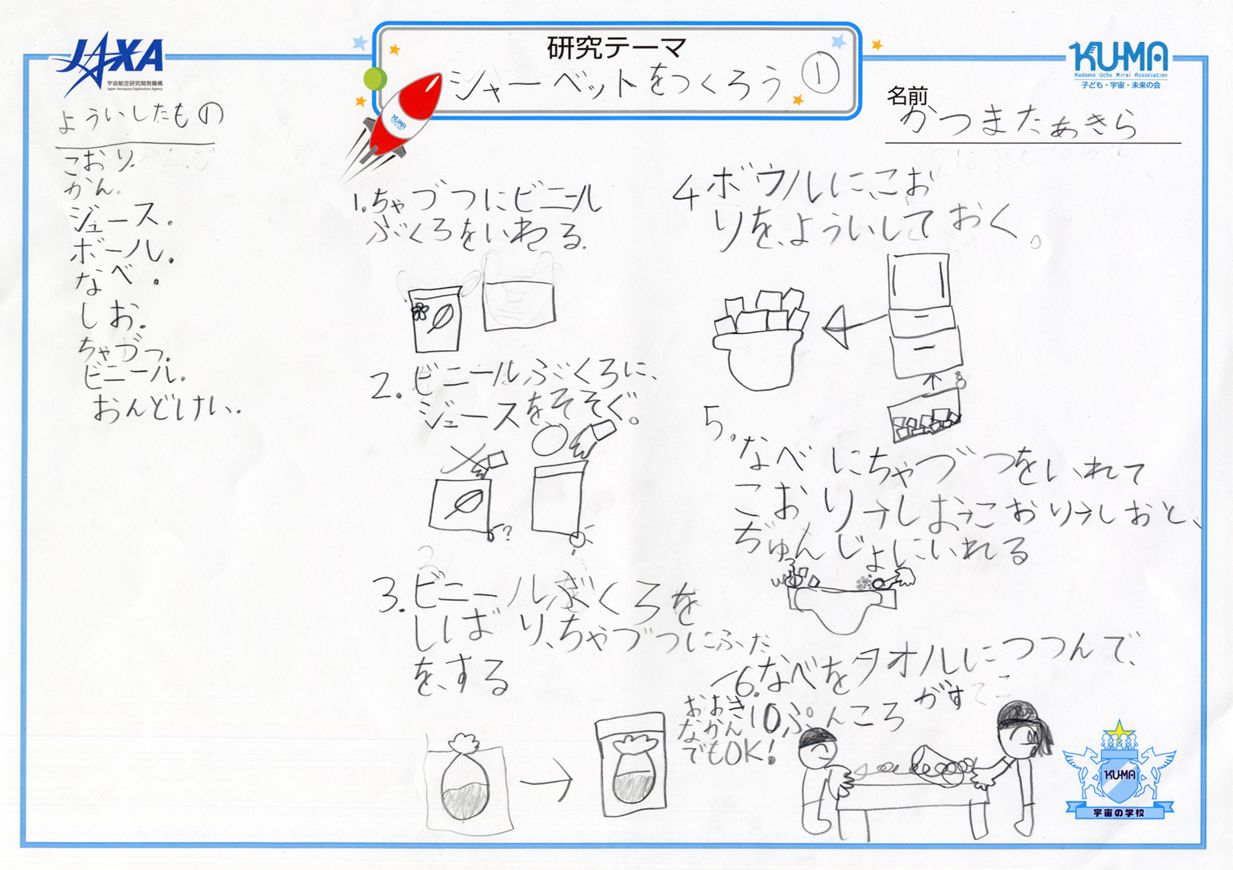 JAXA
宇宙航空研究開発機構
Japan Aerospace Exploration Agency
研究テーマ
シャーベットをつくろう ①
KUMA
Kodomo Uchu Mirai Association
子ども・宇宙・未来の会
名前
かつまたぁきら
よういしたもの
こおり.
かん.
ジュース.
ボール.
なべ.
しお.
ちゃづつ.
ビニール.
おんどけい.
1.ちゃづつにビニール
ぶくろをいれる.
2.ビニールぶくろに、
ジュースをそそぐ。
?
3.ビニールぶくろを
しばり、ちゃづつにふた
を、する
4 ボウルに、こお
りを、よういしておく。
5.なべにちゃづつをいれて
こおり→しお→こおり→しおと、
ぢゅんじょにいれる
6.なべをタオルにつつんで、
10ぷんころがす
おおき
なかん
でもOK!
KUMA
KUMA
宇宙の学校